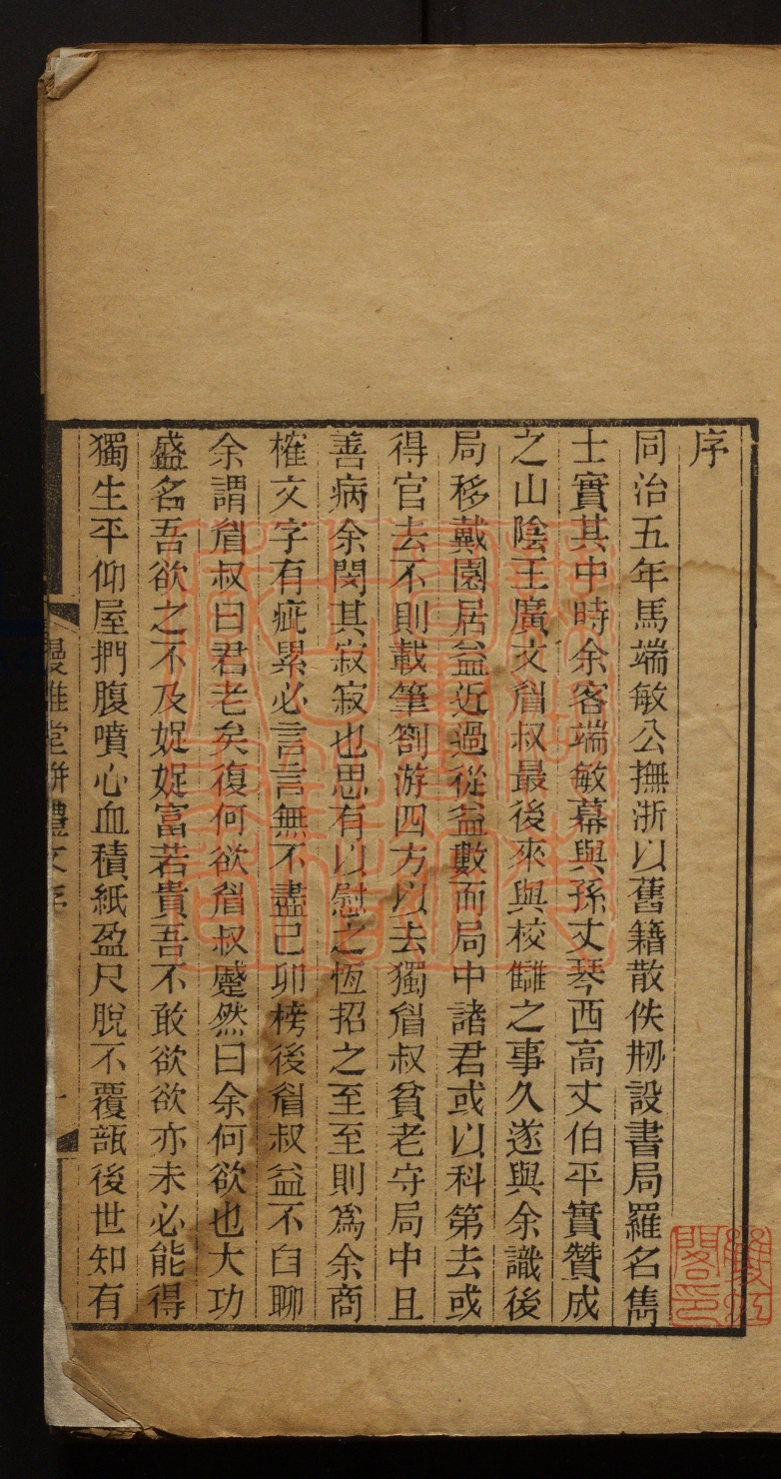 序
同治五年馬端敏公撫浙以舊籍散佚刱設書局羅名雋
士實其中時余客端敏幕與孫丈琴西高丈伯平實贊成
之山陰王廣文眉叔最後來與校讎之事久遂與余識後
局移戴園居益近過從益數而局中諸君或以科第去或
得官去不則載筆劄游四方以去獨眉叔貧老守局中且
善病余閔其寂寂也思有以慰之恆招之至至則爲余商
榷文字有疵累必言言無不盡己卯榜後眉叔益不自聊
余謂眉叔曰君老矣復何欲眉叔蹙然曰余何欲也大功
盛名吾欲之不及娖娖富若貴吾不敢欲欲亦未必能得
獨生平仰屋捫腹噴心血積紙盈尺脫不覆瓿後世知有
堂駢體文存
一
雙紅
閣